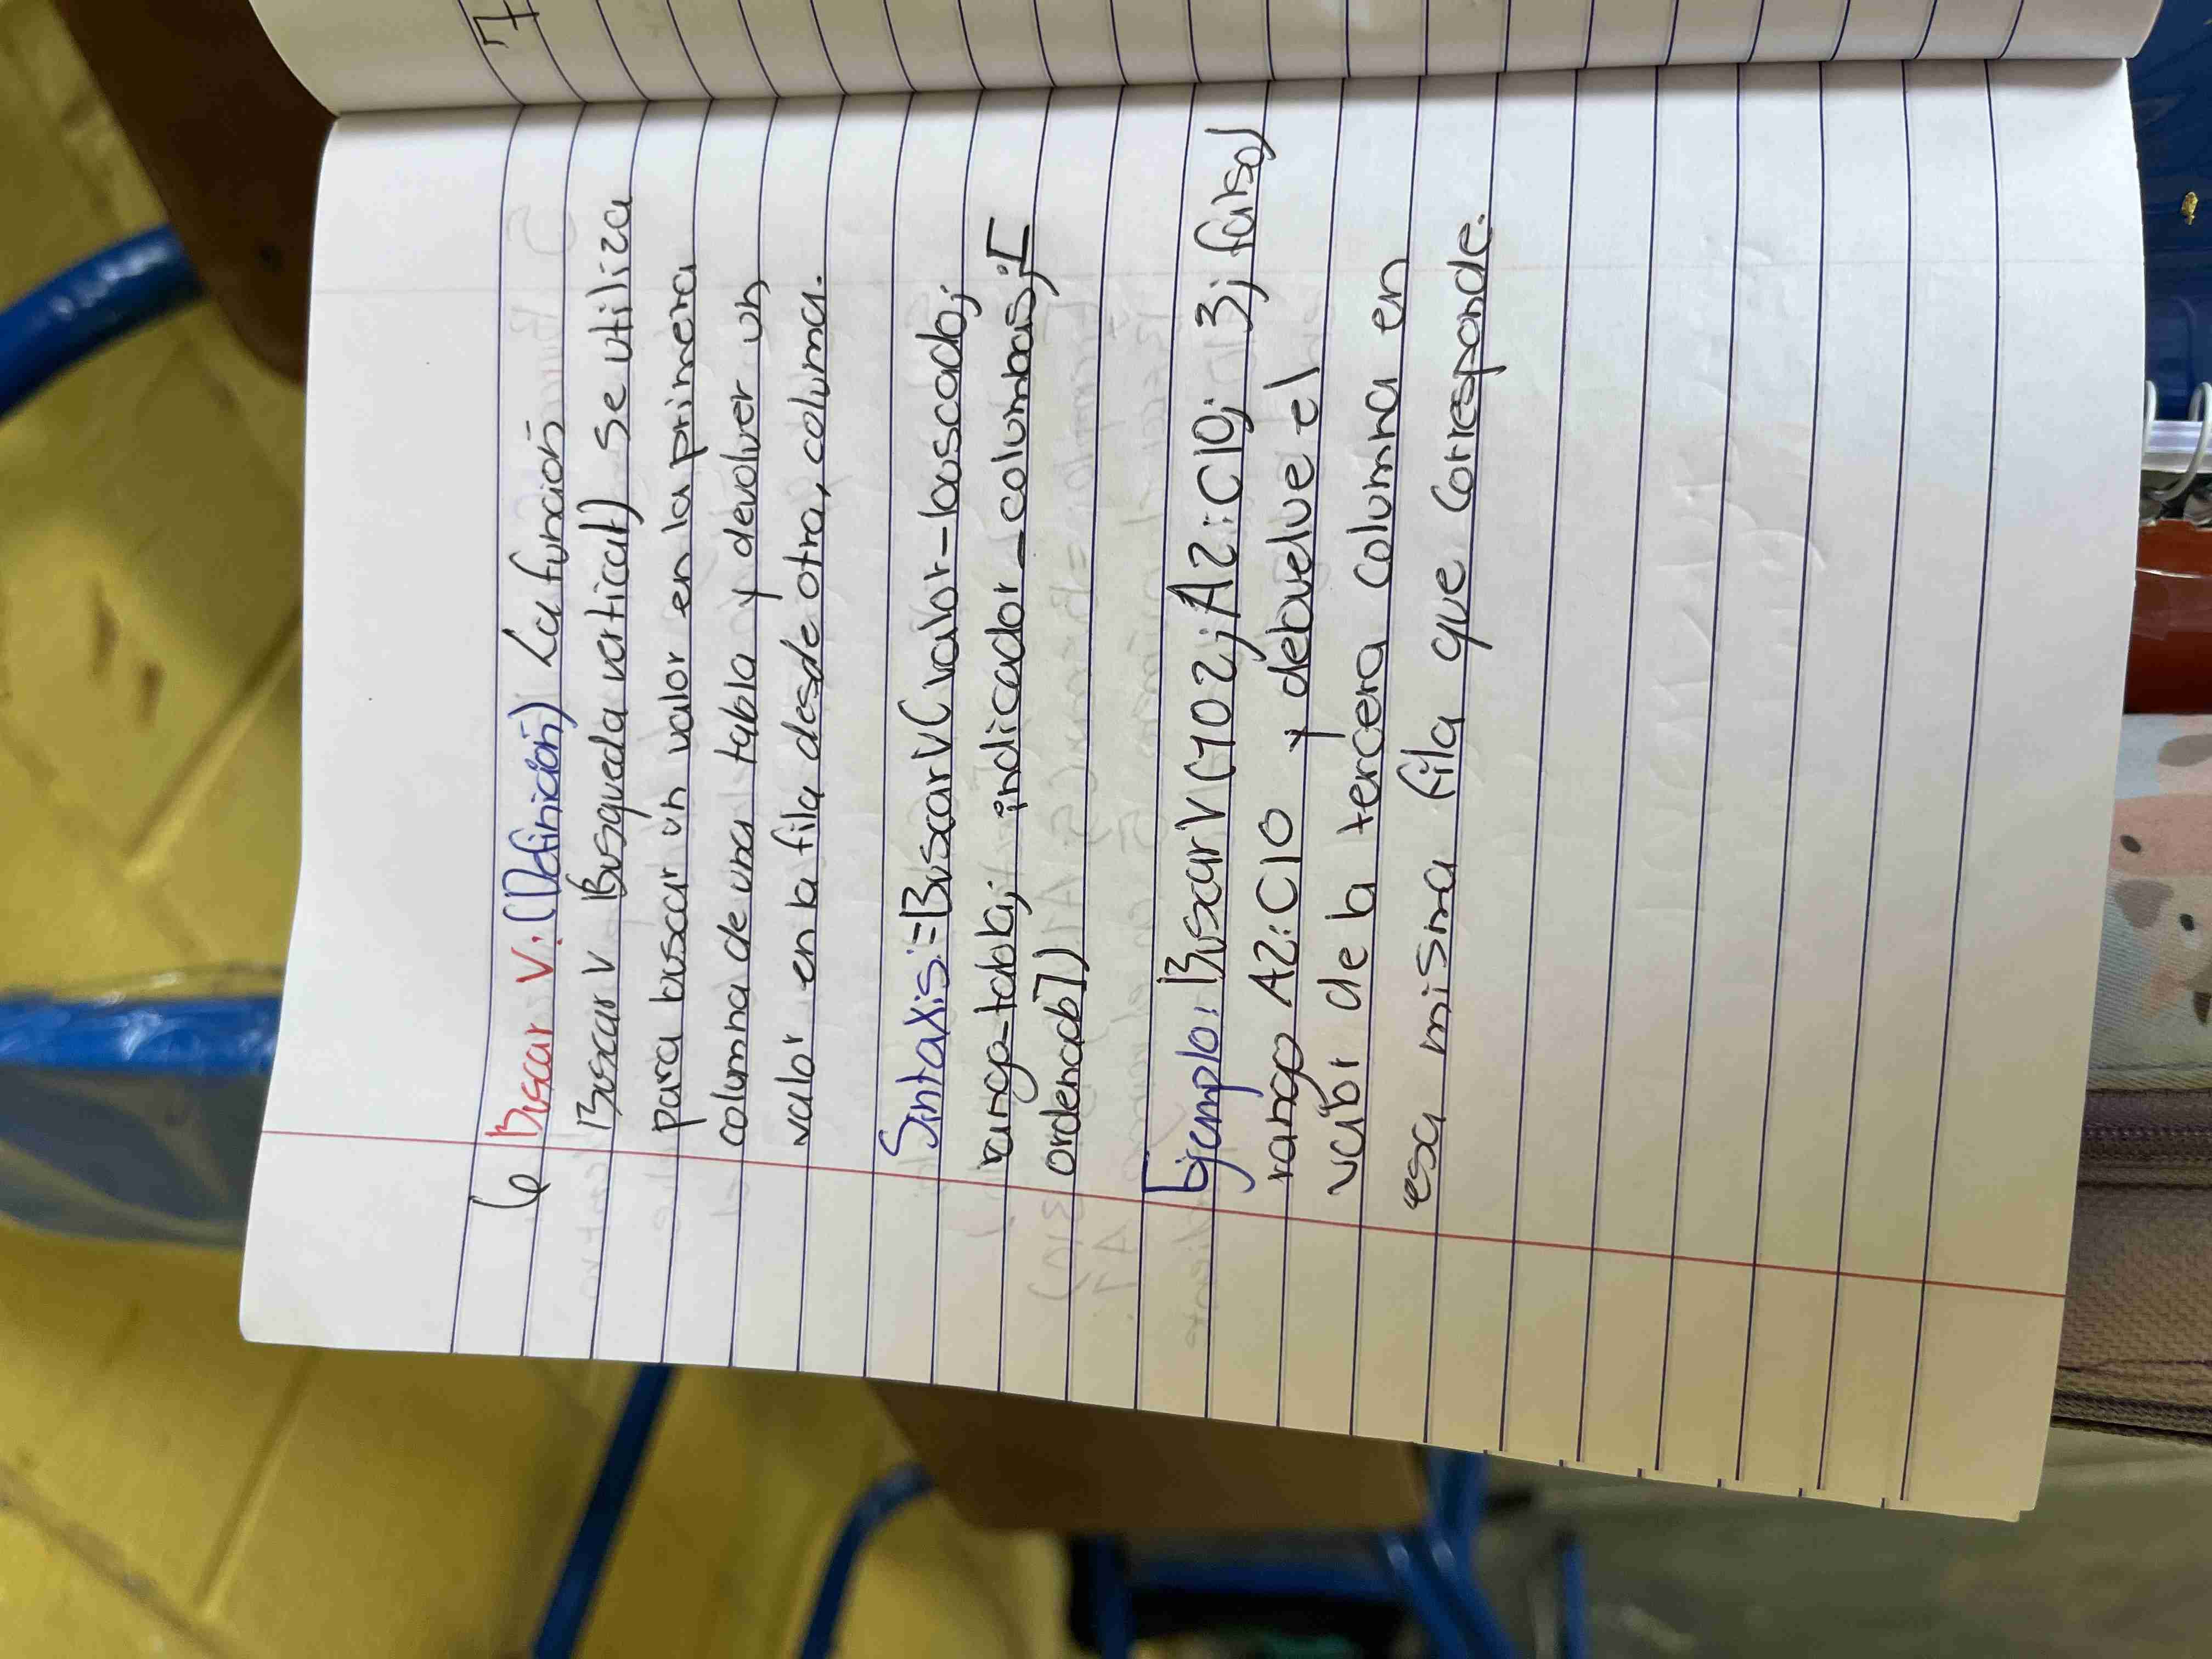 7
6 Buscar V. (Definición) La función
Buscar V (Busqueda vertical) se utiliza
para buscar un valor en la primera
columna de una tabla y devolver un
valor en la fila desde otra, columna.
Sintaxis:=BuscarV(valor-buscado;
rango-tabla; indicador_columnas;[
ordenado])
Ejemplo: BuscarV(102;A2:C10; 3; falso)
rango A2:C10 y debuelve el
valor de la tercera columna en
esa misma fila que corresponde.